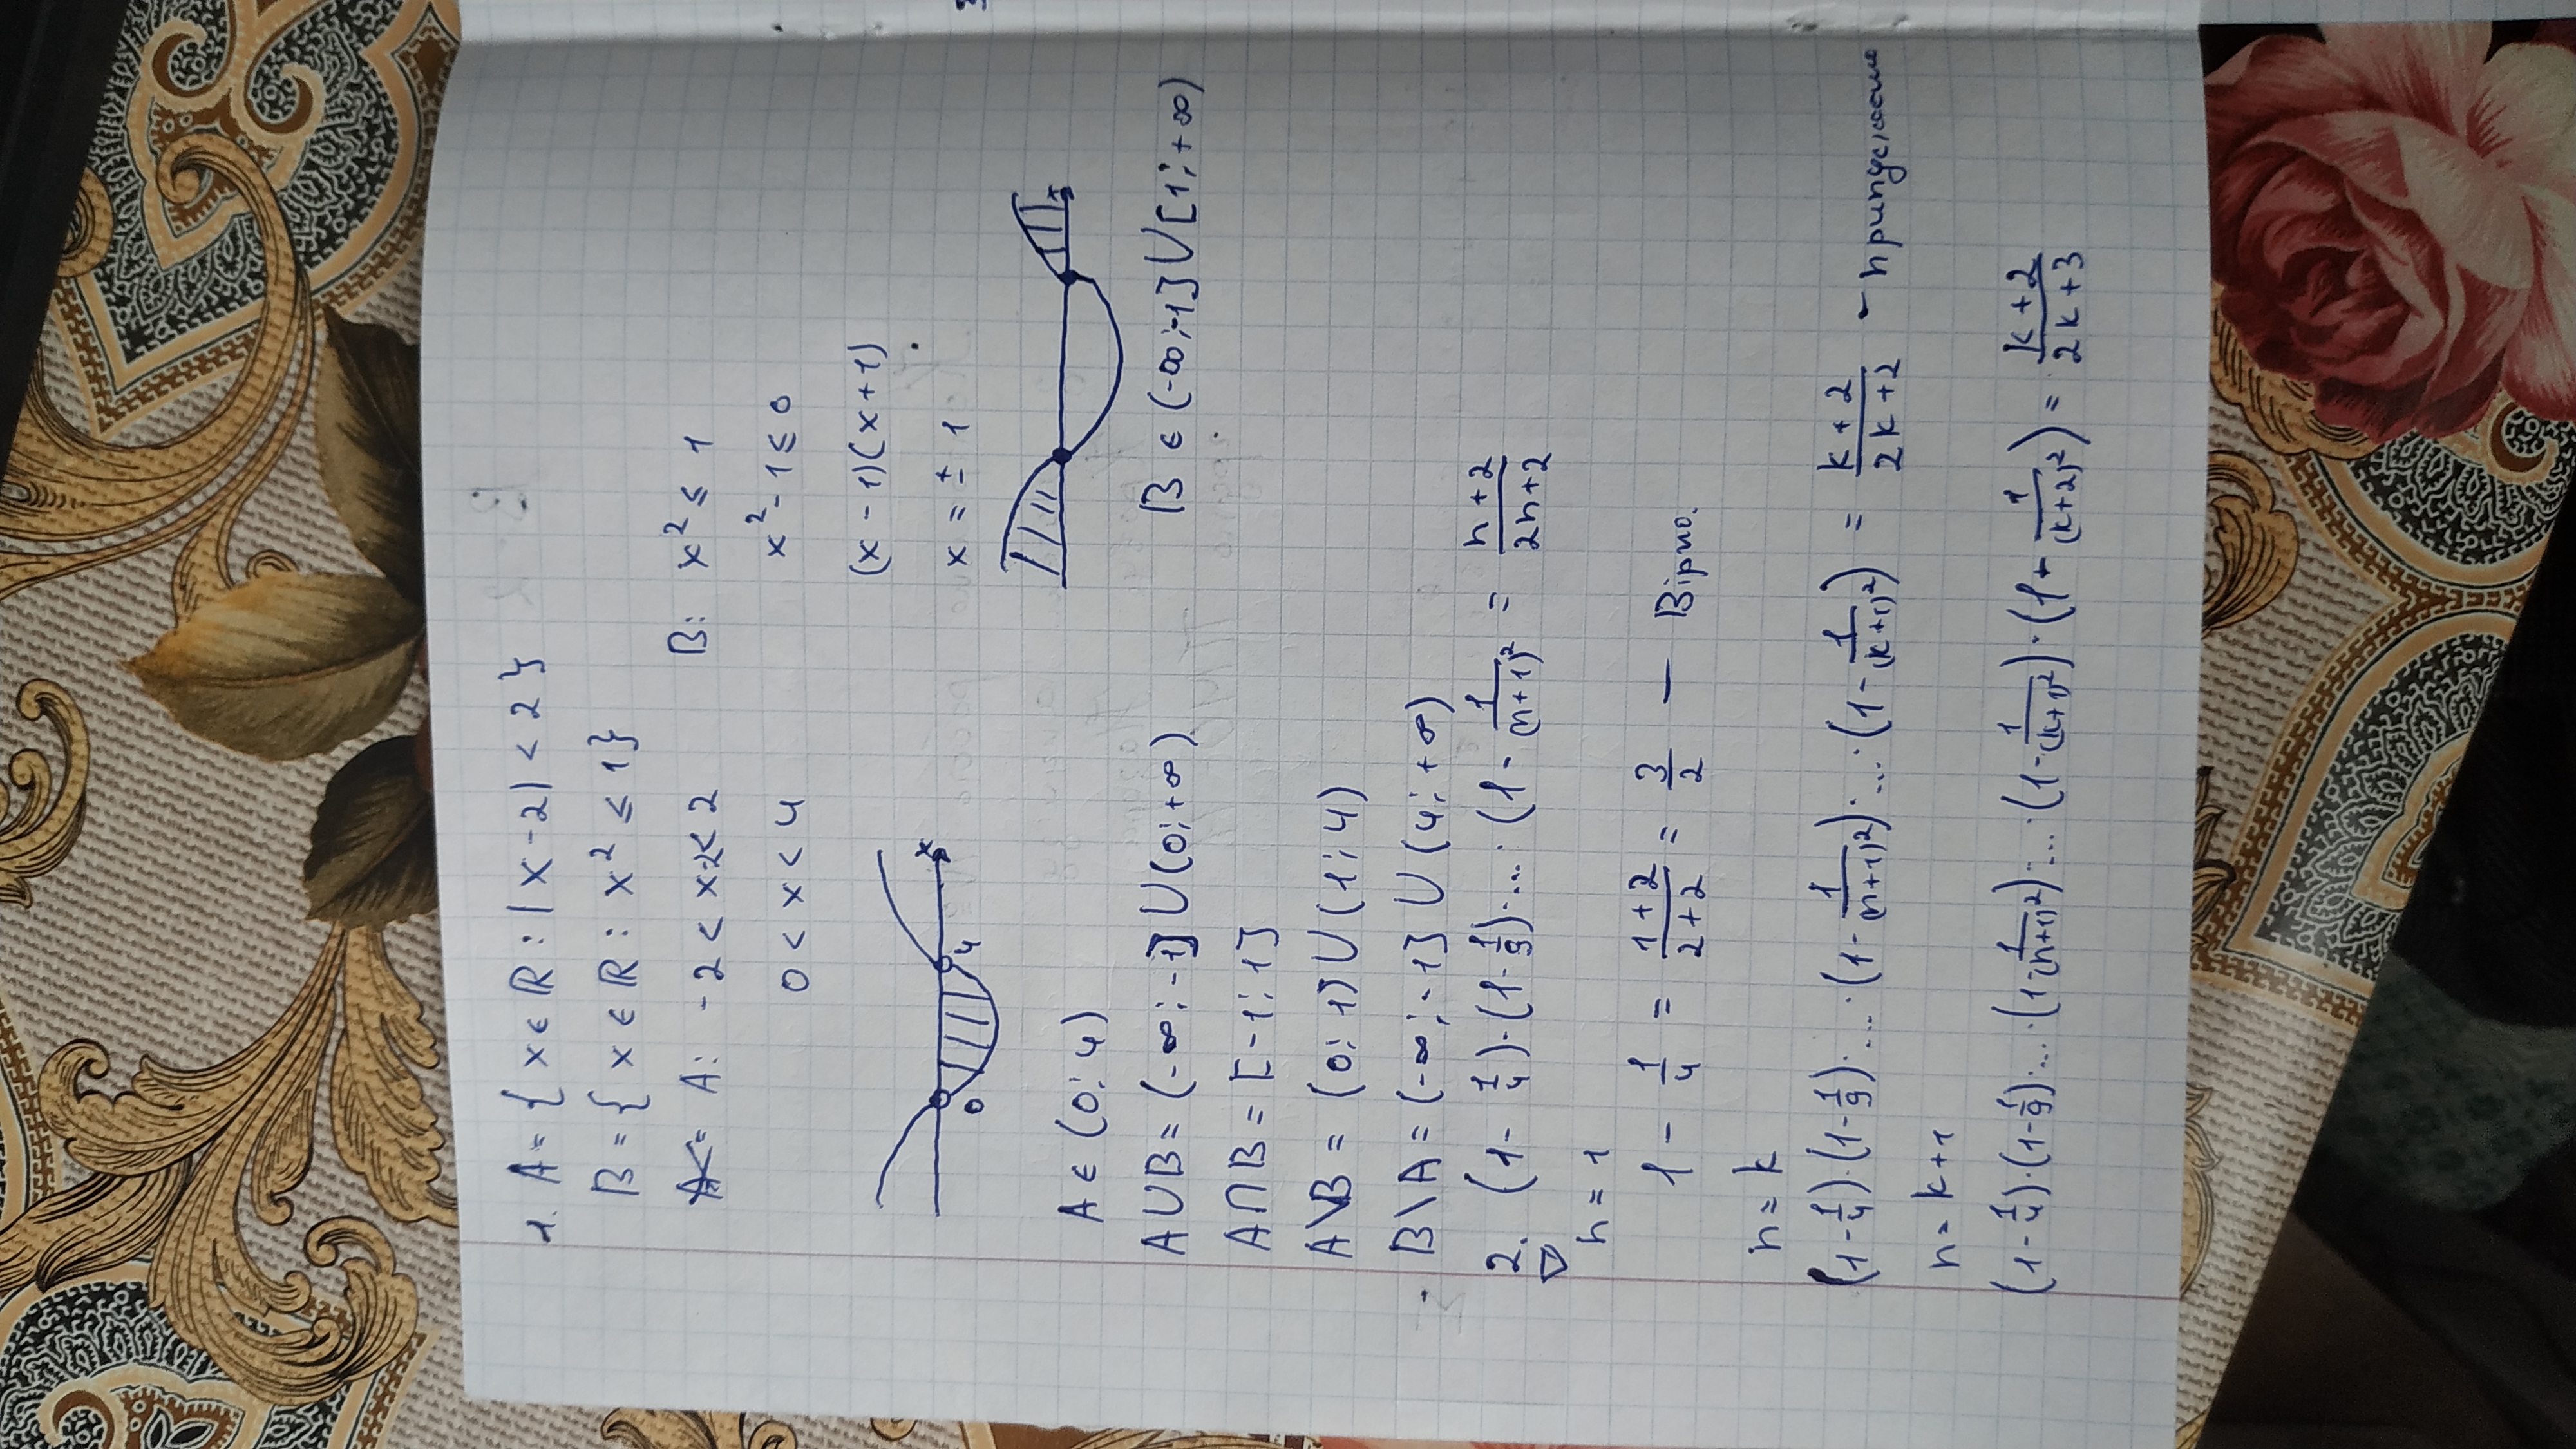 1. A = { x ∈ ℝ : | x - 2 | < 2 }
B = { x ∈ ℝ : x² ≤ 1 }
A: -2 < x-2 < 2
0 < x < 4
x
0 4
A ∈ (0; 4)
B: x² ≤ 1
x² - 1 ≤ 0
(x - 1)(x + 1)
x = ± 1
B ∈ (-∞; -1] ∪ [1; +∞)
A ∪ B = (-∞; -1] ∪ (0; +∞)
A ∩ B = [-1; 1]
A \ B = (0; 1] ∪ (1; 4)
B \ A = (-∞; -1] ∪ (4; +∞)
2. (1 - 1/4) · (1 - 1/9) · ... · (1 - 1/(n+1)² = (n+2)/(2n+2)
n = 1
1 - 1/4 = (1+2)/(2+2) = 3/2 — Вірно.
n = k
(1 - 1/4) · (1 - 1/9) · ... · (1 - 1/(n+1)²) · ... · (1 - 1/(k+1)²) = (k+2)/(2k+2) - припускаємо
n = k+1
(1 - 1/4) · (1 - 1/9) · ... · (1 - 1/(n+1)²) · ... · (1 - 1/(k+1)²) · (1 - 1/(k+2)²) = (k+2)/(2k+3)